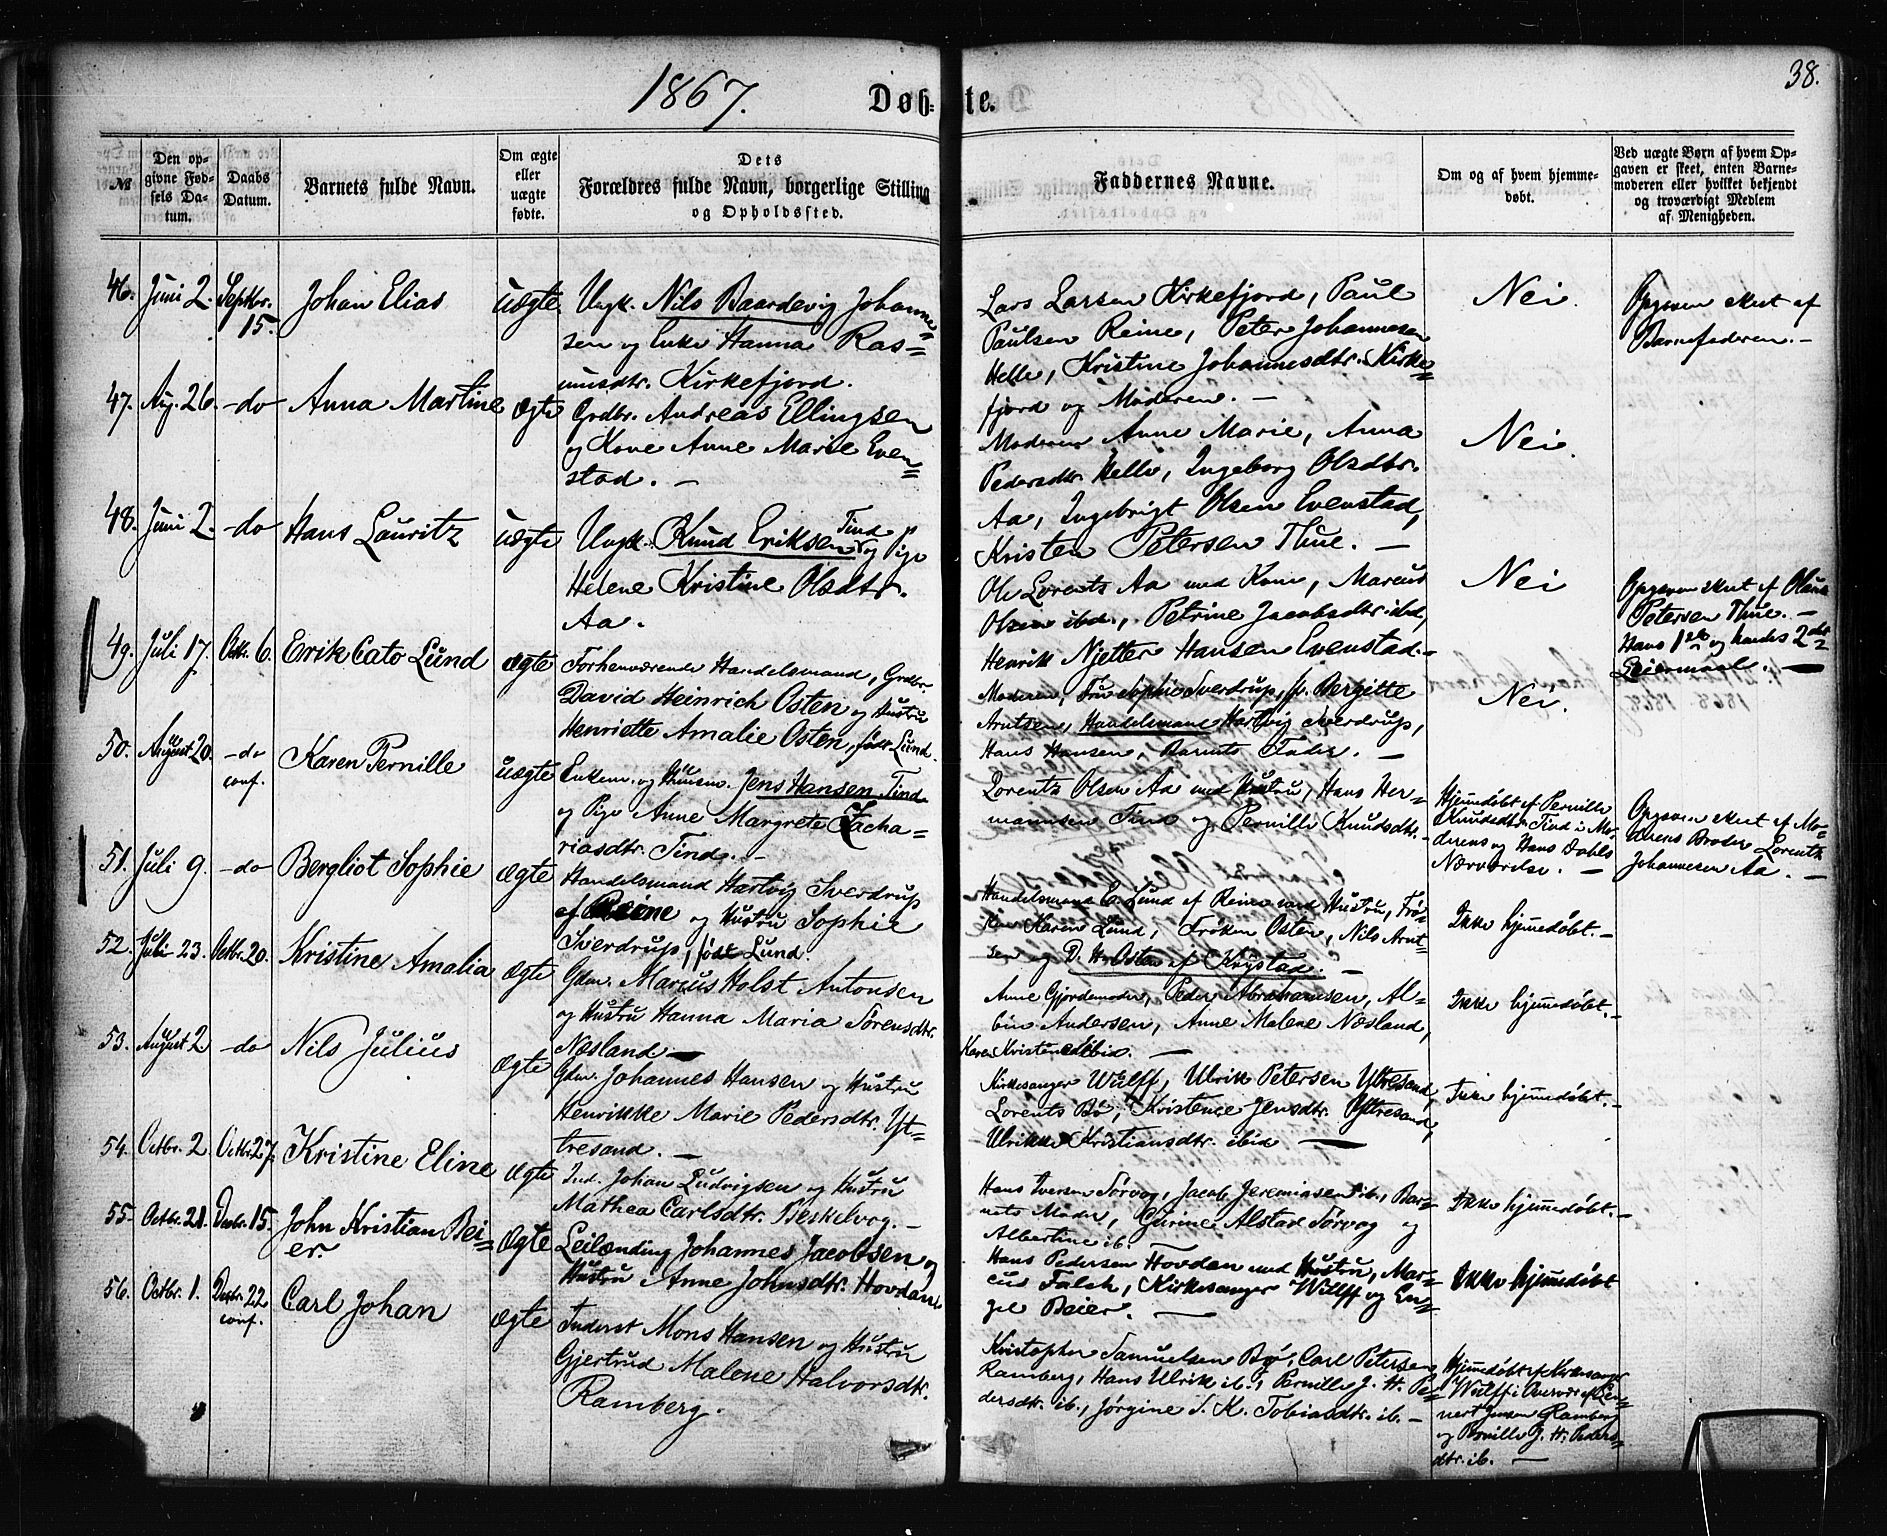 1867.
Døbte.
38.
№
Den opgivne Fødsels Datum.
Daabs Datum.
Barnets fulde Navn.
Om ægte eller uægte fødte.
Dets Forældres fulde Navn, borgerlige Stilling og Opholdssted.
Faddernes Navne.
Om og af hvem hjemmedøbt.
Ved uægte Børn af hvem Opgaven er skeet, enten Barnemoderen eller hvilket bekjendt og troværdigt Medlem af Menigheden.
46. Juni 2. Septbr. 15. Johan Elias uægte
Ungk. Nils Baardevig Johanne=
sen og Enke Hanna Ras=
musdtr. Kirkefjord.
Lars Larsen Kirkefjord, Paul
Paulsen Reine, Peter Johannesen
Helle, Kristine Johannesdtr. Kirke=
fjord og Moderen. —
Nei.
Opgaven skeet af
Barnefaderen. —
47. Aug. 26. -do Anna Martine Ægte
Grdbr. Andreas Ellingsen
og Kone Anne Marie Even=
stad. —
Moderen Anne Marie, Anna
Pedersdtr. Helle, Ingeborg Olsdtr.
Aa, Ingebrigt Olsen Evenstad,
Kristen Petersen Thue. —
Nei.
48. Juni 2. -do Hans Lauritz uægte
Ungk. Knud Eriksen Tind og Pige
Helene Kristine Olsdtr.
Aa.
Ole Lorents Aa med Kone, Marcus
Olsen ibd., Petrine Jacobsdtr. ibd,
Henrik Njetter Hansen Evenstad. —
Nei
Opgaven skeet af Olaus
Petersen Thue. —
Hans 1ste og hendes 2det
Leiermaal. —
49. Juli 17. Octb. 6. Erik Cato Lund ægte
Forhenværende Handelsmand, Grdbr.
David Heinrich Osten og Hustru
Henriette Amalie Osten, født Lund.
Moderen, Fru Sophie Sverdrup, Jr. Bergitte
Arntsen, Handelsmand Hartvig Sverdrup,
Hans Hansen, Barnets Fader. —
Nei.
50. August 20. -do conf. Karen Pernille uægte
Enkem. og Huusm. Jens Hansen Tind
og Pige Anne Margrete Zacha=
riasdtr. Tind. —
Lorents Olsen Aa med Hustru, Hans Her=
mannsen Tind og Pernille Knudsdtr. —
Hjemmedøbt af Pernille
Knudsdtr. Tind i Mo=
derens og Hans Dahls
Nærværelse. —
Opgaven skeet af Mo=
derens Broder Lorents
Johannesen Aa. —
51. Juli 9. -do Bergliot Sophie ægte
Handelsmand Hartvig Sverdrup
af Reine og Hustru Sophie
Sverdrup, født Lund.
Handelsmand E. Lund af Reine med Hustru, Frø=
ken Karen Lund, Frøken Osten, Nils Arnt=
sen og D. H. Osten af Krystad. —
Ikke hjemmedøbt. —
52. Juli 23. Octbr. 20. Kristine Amalia Ægte
Gdm. Marius Holst Antonsen
og Hustru Hanna Maria Sørensdtr.
Næsland —
Anne Gjordemoder, Peder Abrahamsen, Al=
bin Andersen, Anne Malene Næsland,
Karen Kristensd. ibid. —
Ikke hjemmedøbt. —
53. August 2 -do Nils Julius Ægte
Gdm. Johannes Hansen og Hustru
Henrikke Marie Pedersdtr. Yt=
tresand. —
Kirkesanger Wulff, Ulrik Petersen Yttresand,
Lorents Bø, Kristence Jensdtr. Yttresand,
Ulrikke Kristiansdtr. ibid —
Ikke hjemmedøbt. —
54. Octbr. 2 Octbr. 27. Kristine Eline Ægte
Ind. Johan Ludvigsen og Hustru
Mathea Carlsdtr. Beskelvog. —
Hans Iversen Sørvog, Jacob Jeremiasen ib., Bar=
nets Moder, Gurine Alstad Sørvog og
Albertine ib.
Ikke hjemmedøbt. —
55. Octbr. 21. Decbr. 15. John Kristian Bei=
er. Ægte
Leilænding Johannes Jacobsen og
Hustru Anne Johnsdtr. Hovdan.
Hans Pedersen Hovdan med Hustru, Mar=
cus Falch, Kirkesanger Wulff og En=
gel Beier. —
Ikke hjemmedøbt
56. Octbr. 1. Decbr. 22 conf. Carl Johan Ægte
Inderst Mons Hansen og Hustru
Gjertrud Malene Halvorsdtr.
Ramberg.
Kristopher Samuelsen Bø, Carl Petersen
Ramberg, Hans Ulrik ib., Pernille J. H. Pe=
dersdtr. ib., Jørgine S. K. Tobiasdtr. ib. —
Hjemmedøbt af Kirkesanger
Wulff i Overvær af Len=
nert Jensen Ramberg
og Pernille J. H. Peders=
dtr. ib. —